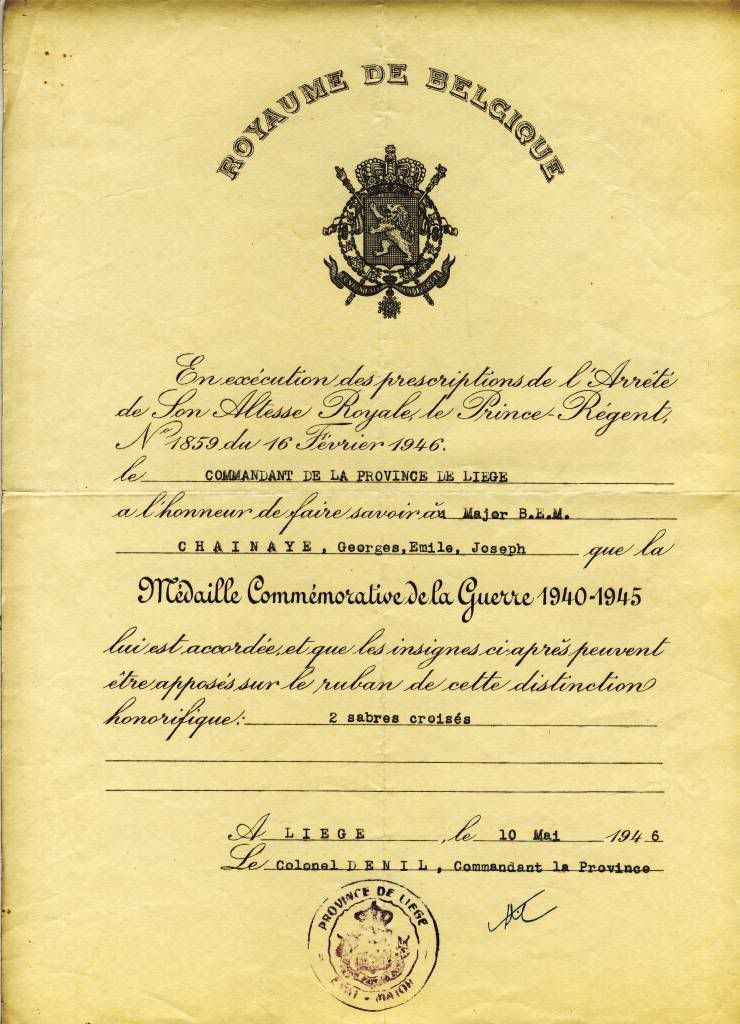 ROYAUME DE BELGIQUE
En exécution des prescriptions de l'Arrêté
de Son Altesse Royale, le Prince-Régent,
No 1859 du 16 Février 1946.
le COMMANDANT DE LA PROVINCE DE LIEGE
a l'honneur de faire savoir au Major B.E.M.
CHAINAYE, Georges, Emile, Joseph que la
Médaille Commémorative de la Guerre 1940-1945
lui est accordée, et que les insignes ci-après peuvent
être apposés sur le ruban de cette distinction
honorifique: 2 sabres croisés
A LIEGE, le 10 Mai 1946
Le Colonel DENIL, Commandant la Province
PROVINCE DE LIEGE
ETAT-MAJOR